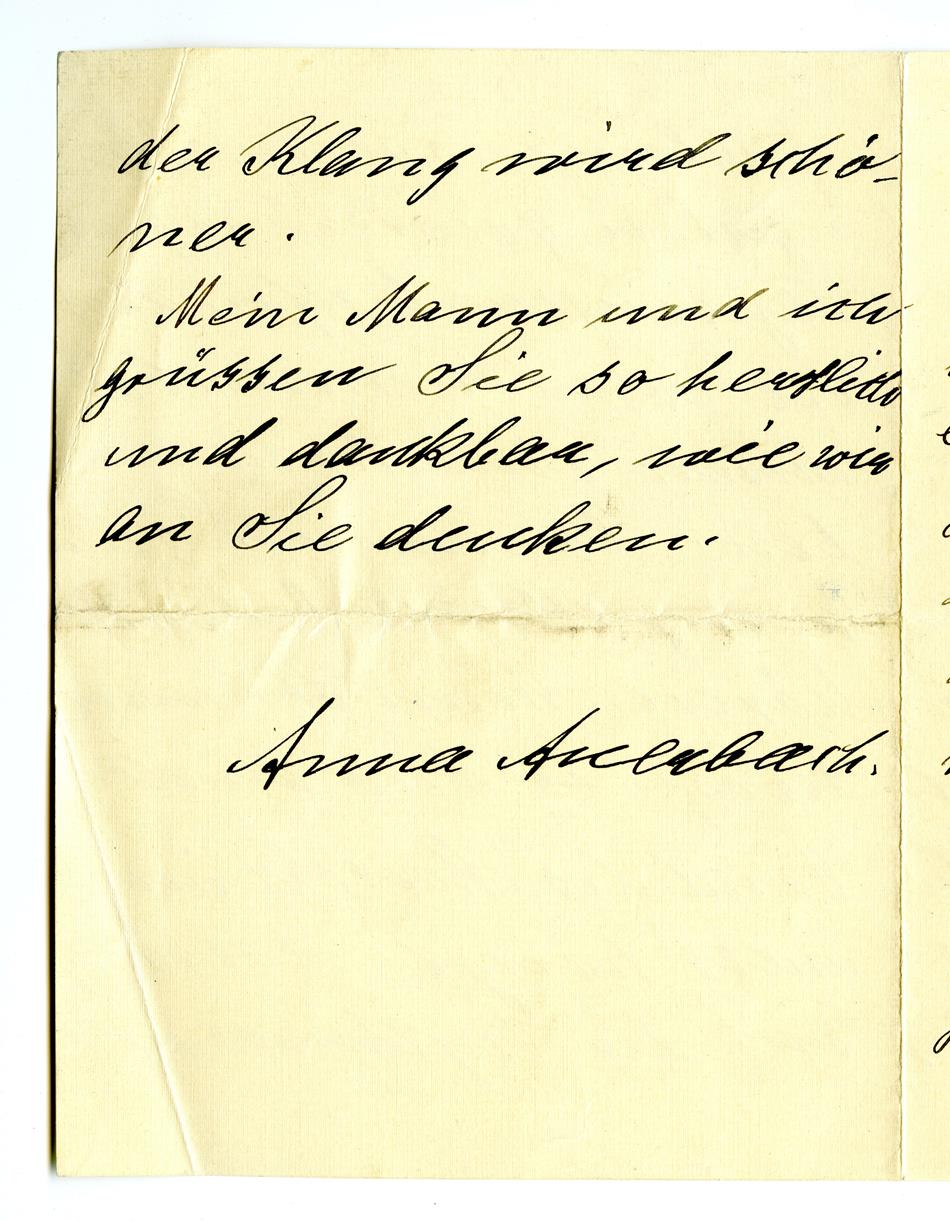 der Klang wird schö-
ner.
Mein Mann und ich
grüssen Sie so herzlich
und dankbar, wie wir
an Sie denken.
Anna Auerbach.